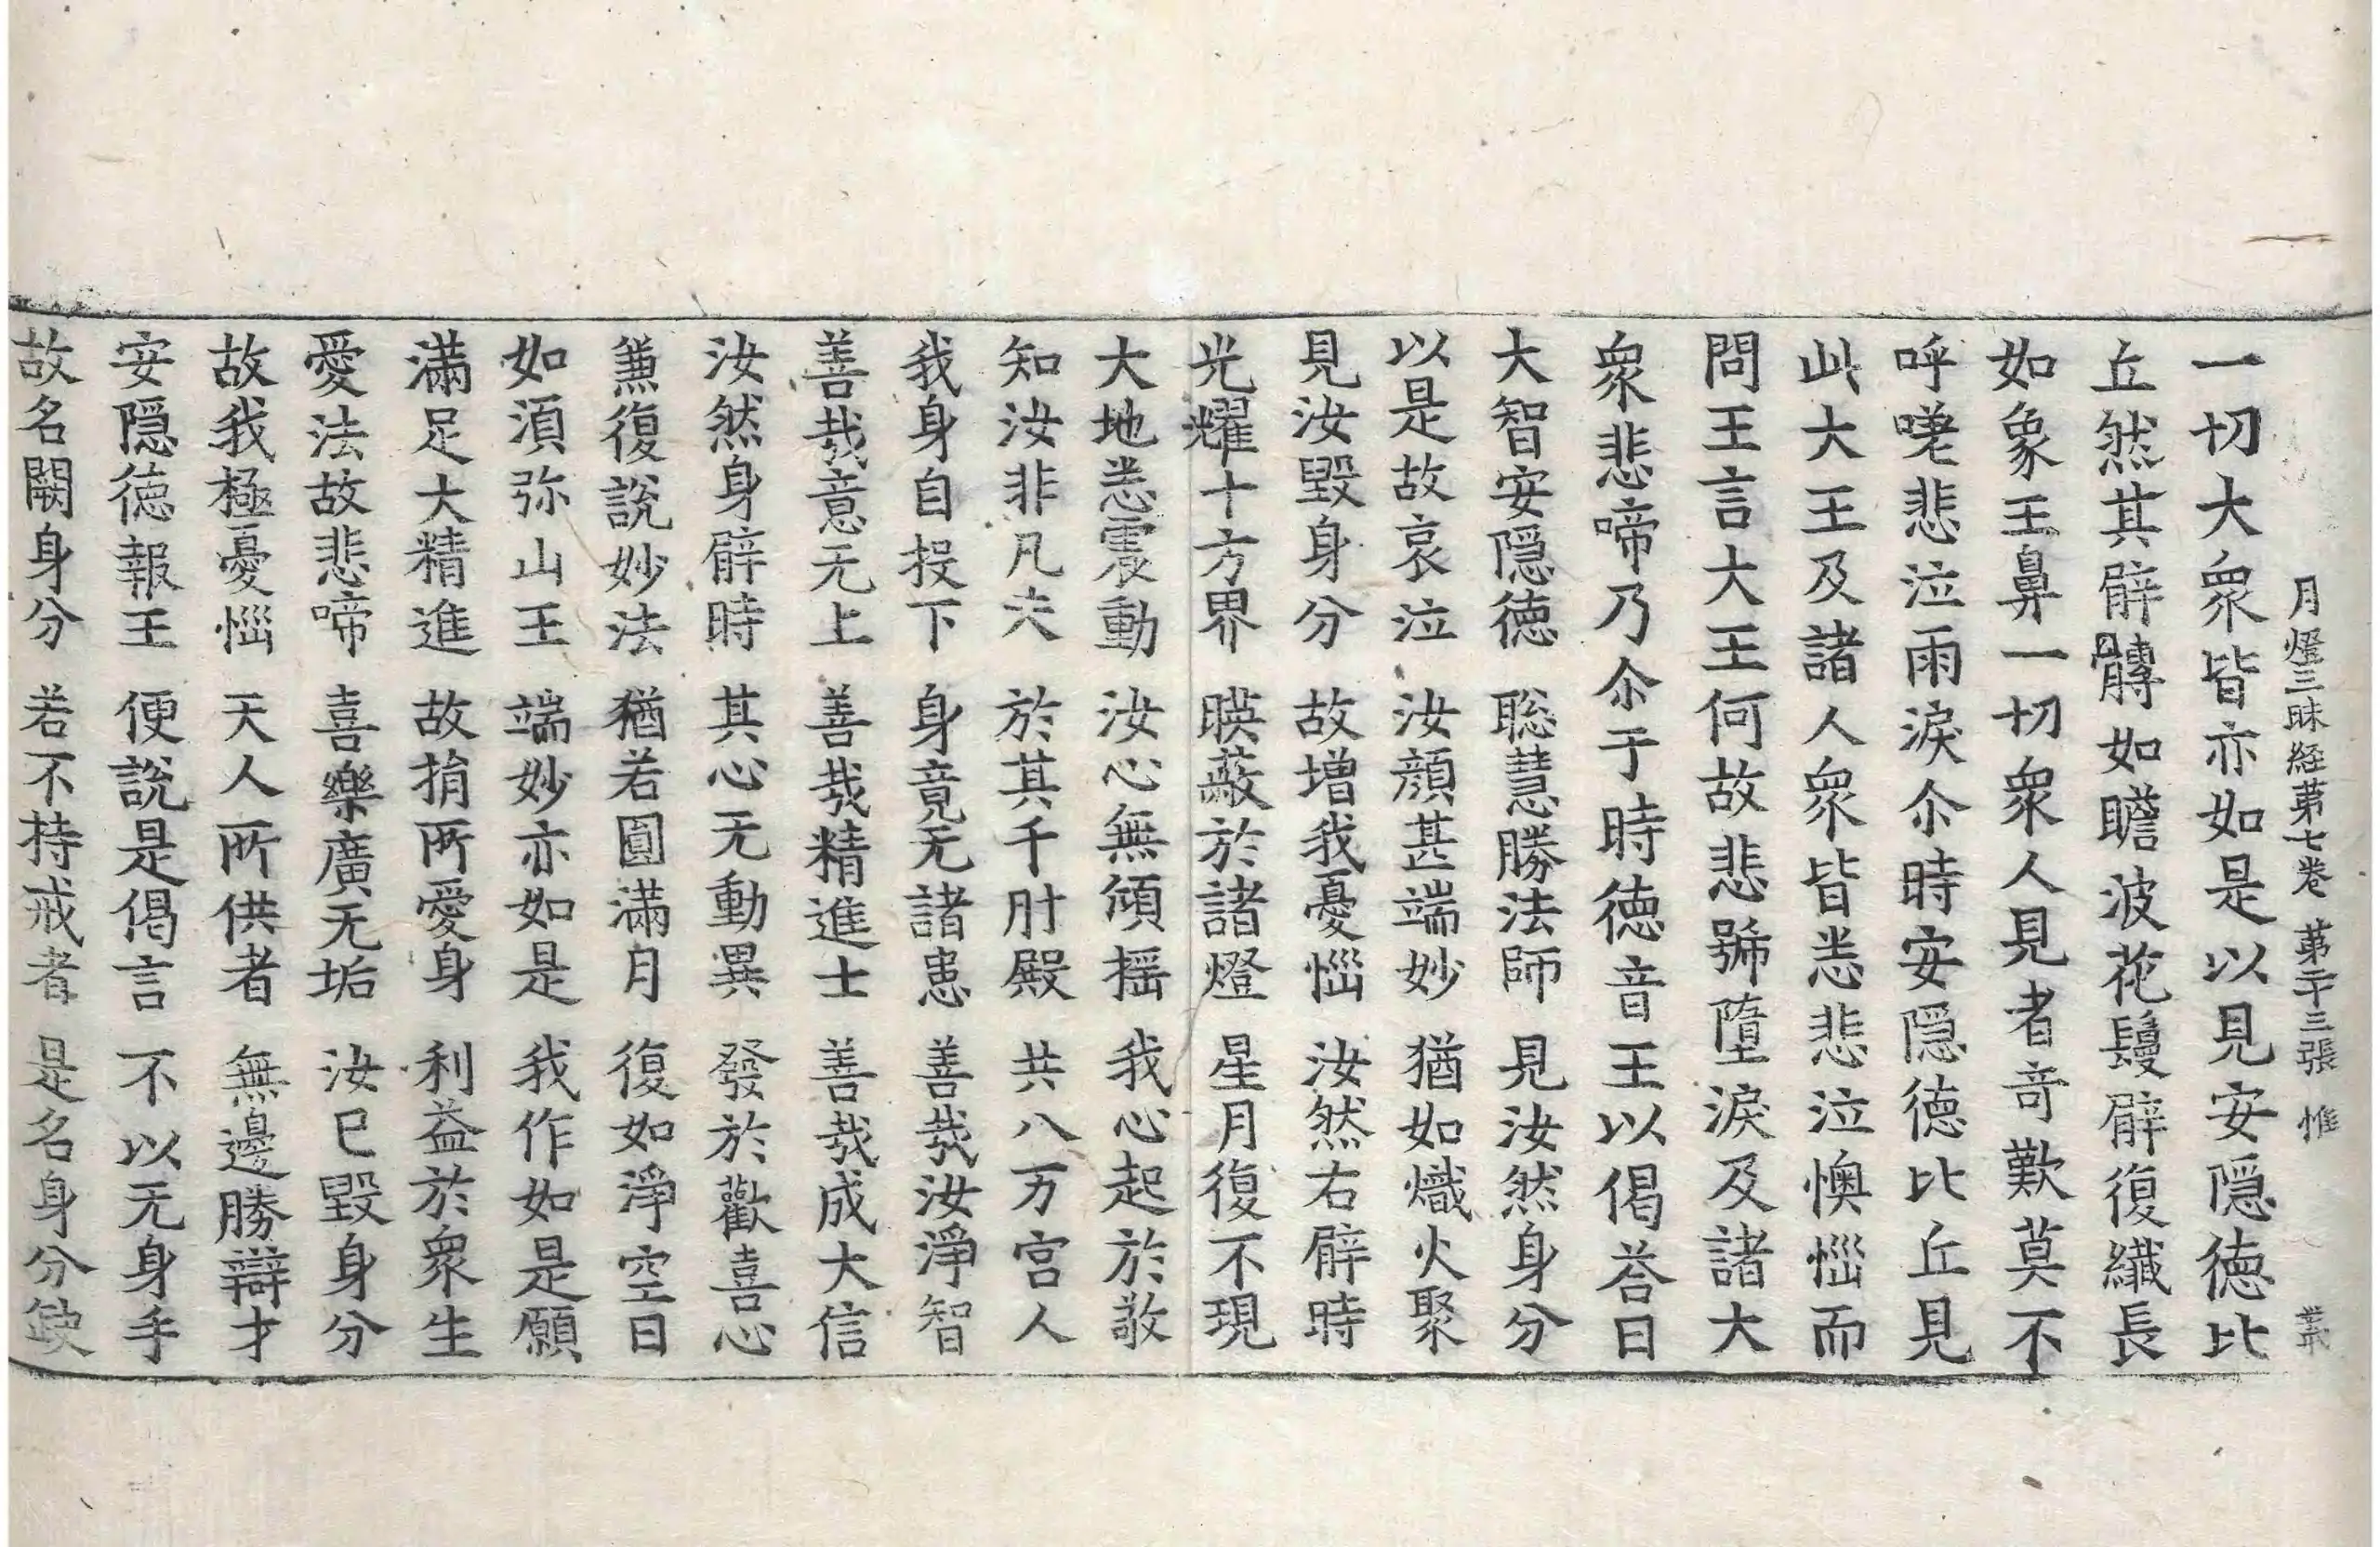 月燈三昧経苐七卷 苐二十三張 惟
一切大衆皆亦如是以見安隠徳比
丘然其臂髆如瞻波花鬘臂復纎長
如象王鼻一切衆人見者竒歎莫不
呼嗟悲泣雨淚尒時安隠徳比丘見
此大王及諸人衆皆悉悲泣懊惱而
問王言大王何故悲號墮淚及諸大
衆悲啼乃尒于時徳音王以偈荅曰
大智安隠徳 聡慧勝法師 見汝然身分
以是故哀泣 汝顔甚端妙 猶如熾火聚
見汝毀身分 故増我憂惱 汝然右臂時
光耀十方界 暎蔽於諸燈 星月復不現
大地悉震動 汝心無傾揺 我心起於敬
知汝非凡夫 於其千肘殿 共八万宫人
我身自投下 身竟无諸患 善哉汝淨智
善哉意无上 善哉精進士 善哉成大信
汝然身臂時 其心无動異 發於歡喜心
兼復說妙法 猶若圓滿月 復如淨空日
如湏弥山王 端妙亦如是 我作如是願
滿足大精進 故捐所愛身 利益於衆生
愛法故悲啼 喜樂廣无垢 汝已毀身分
故我極憂惱 天人所供者 無邊勝辯才
安隠徳報王 便說是偈言 不以无身手
故名闕身分 若不持戒者 是名身分缺